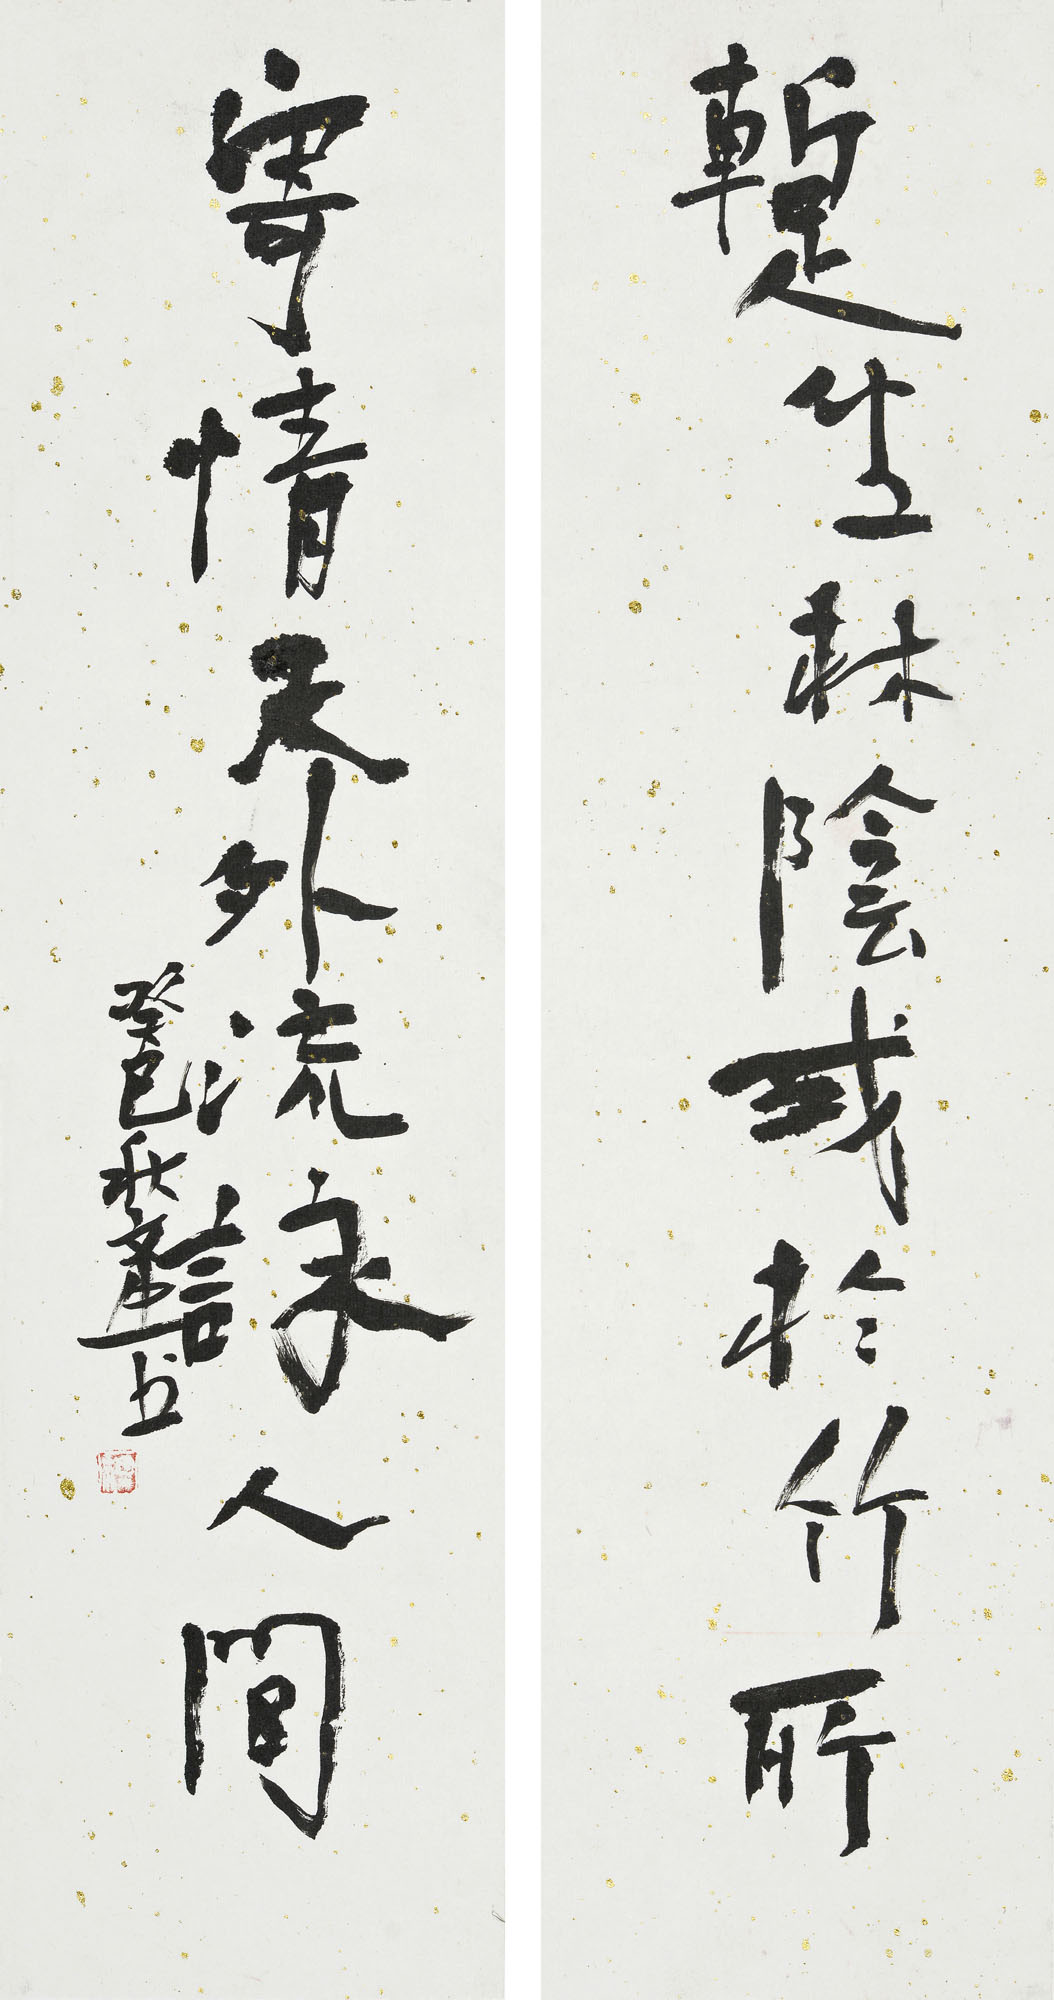 蹔坐林陰或於竹所
寄情天外流詠人間
癸巳秋 書